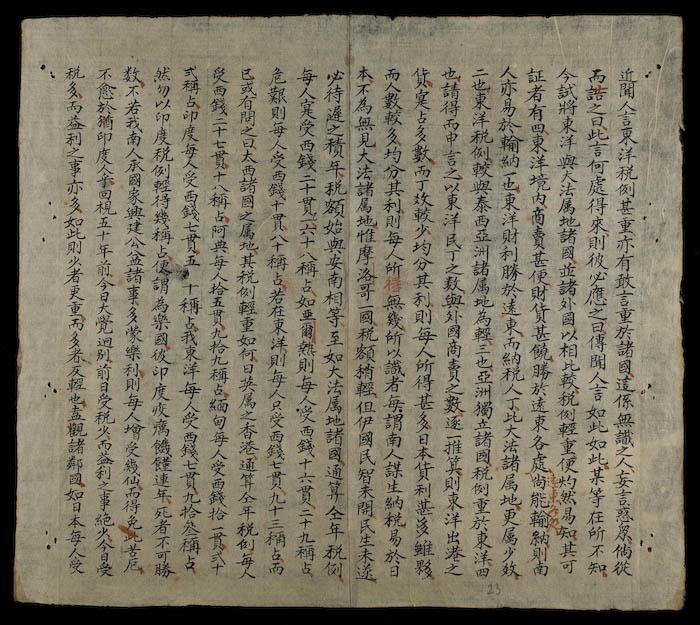 近聞人言東洋稅例甚重亦有敢言重於諸國這係無識之人妄言惑眾倘從
而詰之曰此言何處得來則彼必應之曰傳聞人言如此如此某等在所不知
今試將東洋與大法属地諸國近諸外國以相比較稅例輕重便灼然易知其可
証者有四東洋境內商賣甚便財貨甚饒勝於遠東各處尚能輸納則南
人亦易於輸納一也東洋財利勝於遠東而納稅人丁此大法諸属地更属少数
二也東洋稅例較與泰西亞洲諸属地為輕三也亞洲獨立諸國稅例重於東洋四
也請得而申言之以東洋民丁之数與外國商賣之数逐一推算則東洋出港之
貨寔占多數而丁效較少均分其利則每人所得甚多日本貨利甚多雖夥
而人數較多均分其利則每人所得無幾所以識者每謂南人謀生納稅易於日
本不為無見大法諸属地惟摩洛哥一國稅額稍輕但伊國民智未開民生未遂
必待遲之積年稅額始與安南相等至如大法属地諸國通算全年稅例
每人寔受西錢二十貫六十八稱占如亞爾熱則每人受西錢十六貫二十九稱占
危難則每人受西錢十貫八十稱占若在東洋則每人只受西錢七貫九十三稱占而
已或有問之曰太西諸國之属地其稅例輕重如何曰英属之香港通算全年稅例每人
受西錢二十七貫十八稱占阿典每人拾五貫九拾九稱占緬甸每人受西錢拾一貫弍十
弍稱占印度每人受西錢七貫五十稱占我東洋每人受西錢七貫九拾叁稱占
然勿以印度稅例輕得幾稱占便謂為樂國彼印度疫癘饑饉連年死者不可勝
数不若我南人承國家興建公益諸事多蒙樂利則每人增受幾仙而得免此苦厄
不愈於猶印度人乎回視五十年前今日大覺迥別前日受稅少而益利之事絕少今日受
稅多而益利之事亦多如此則少者更重而多者反輕也盍觀諸鄰國如日本每人受
遠東各處
23